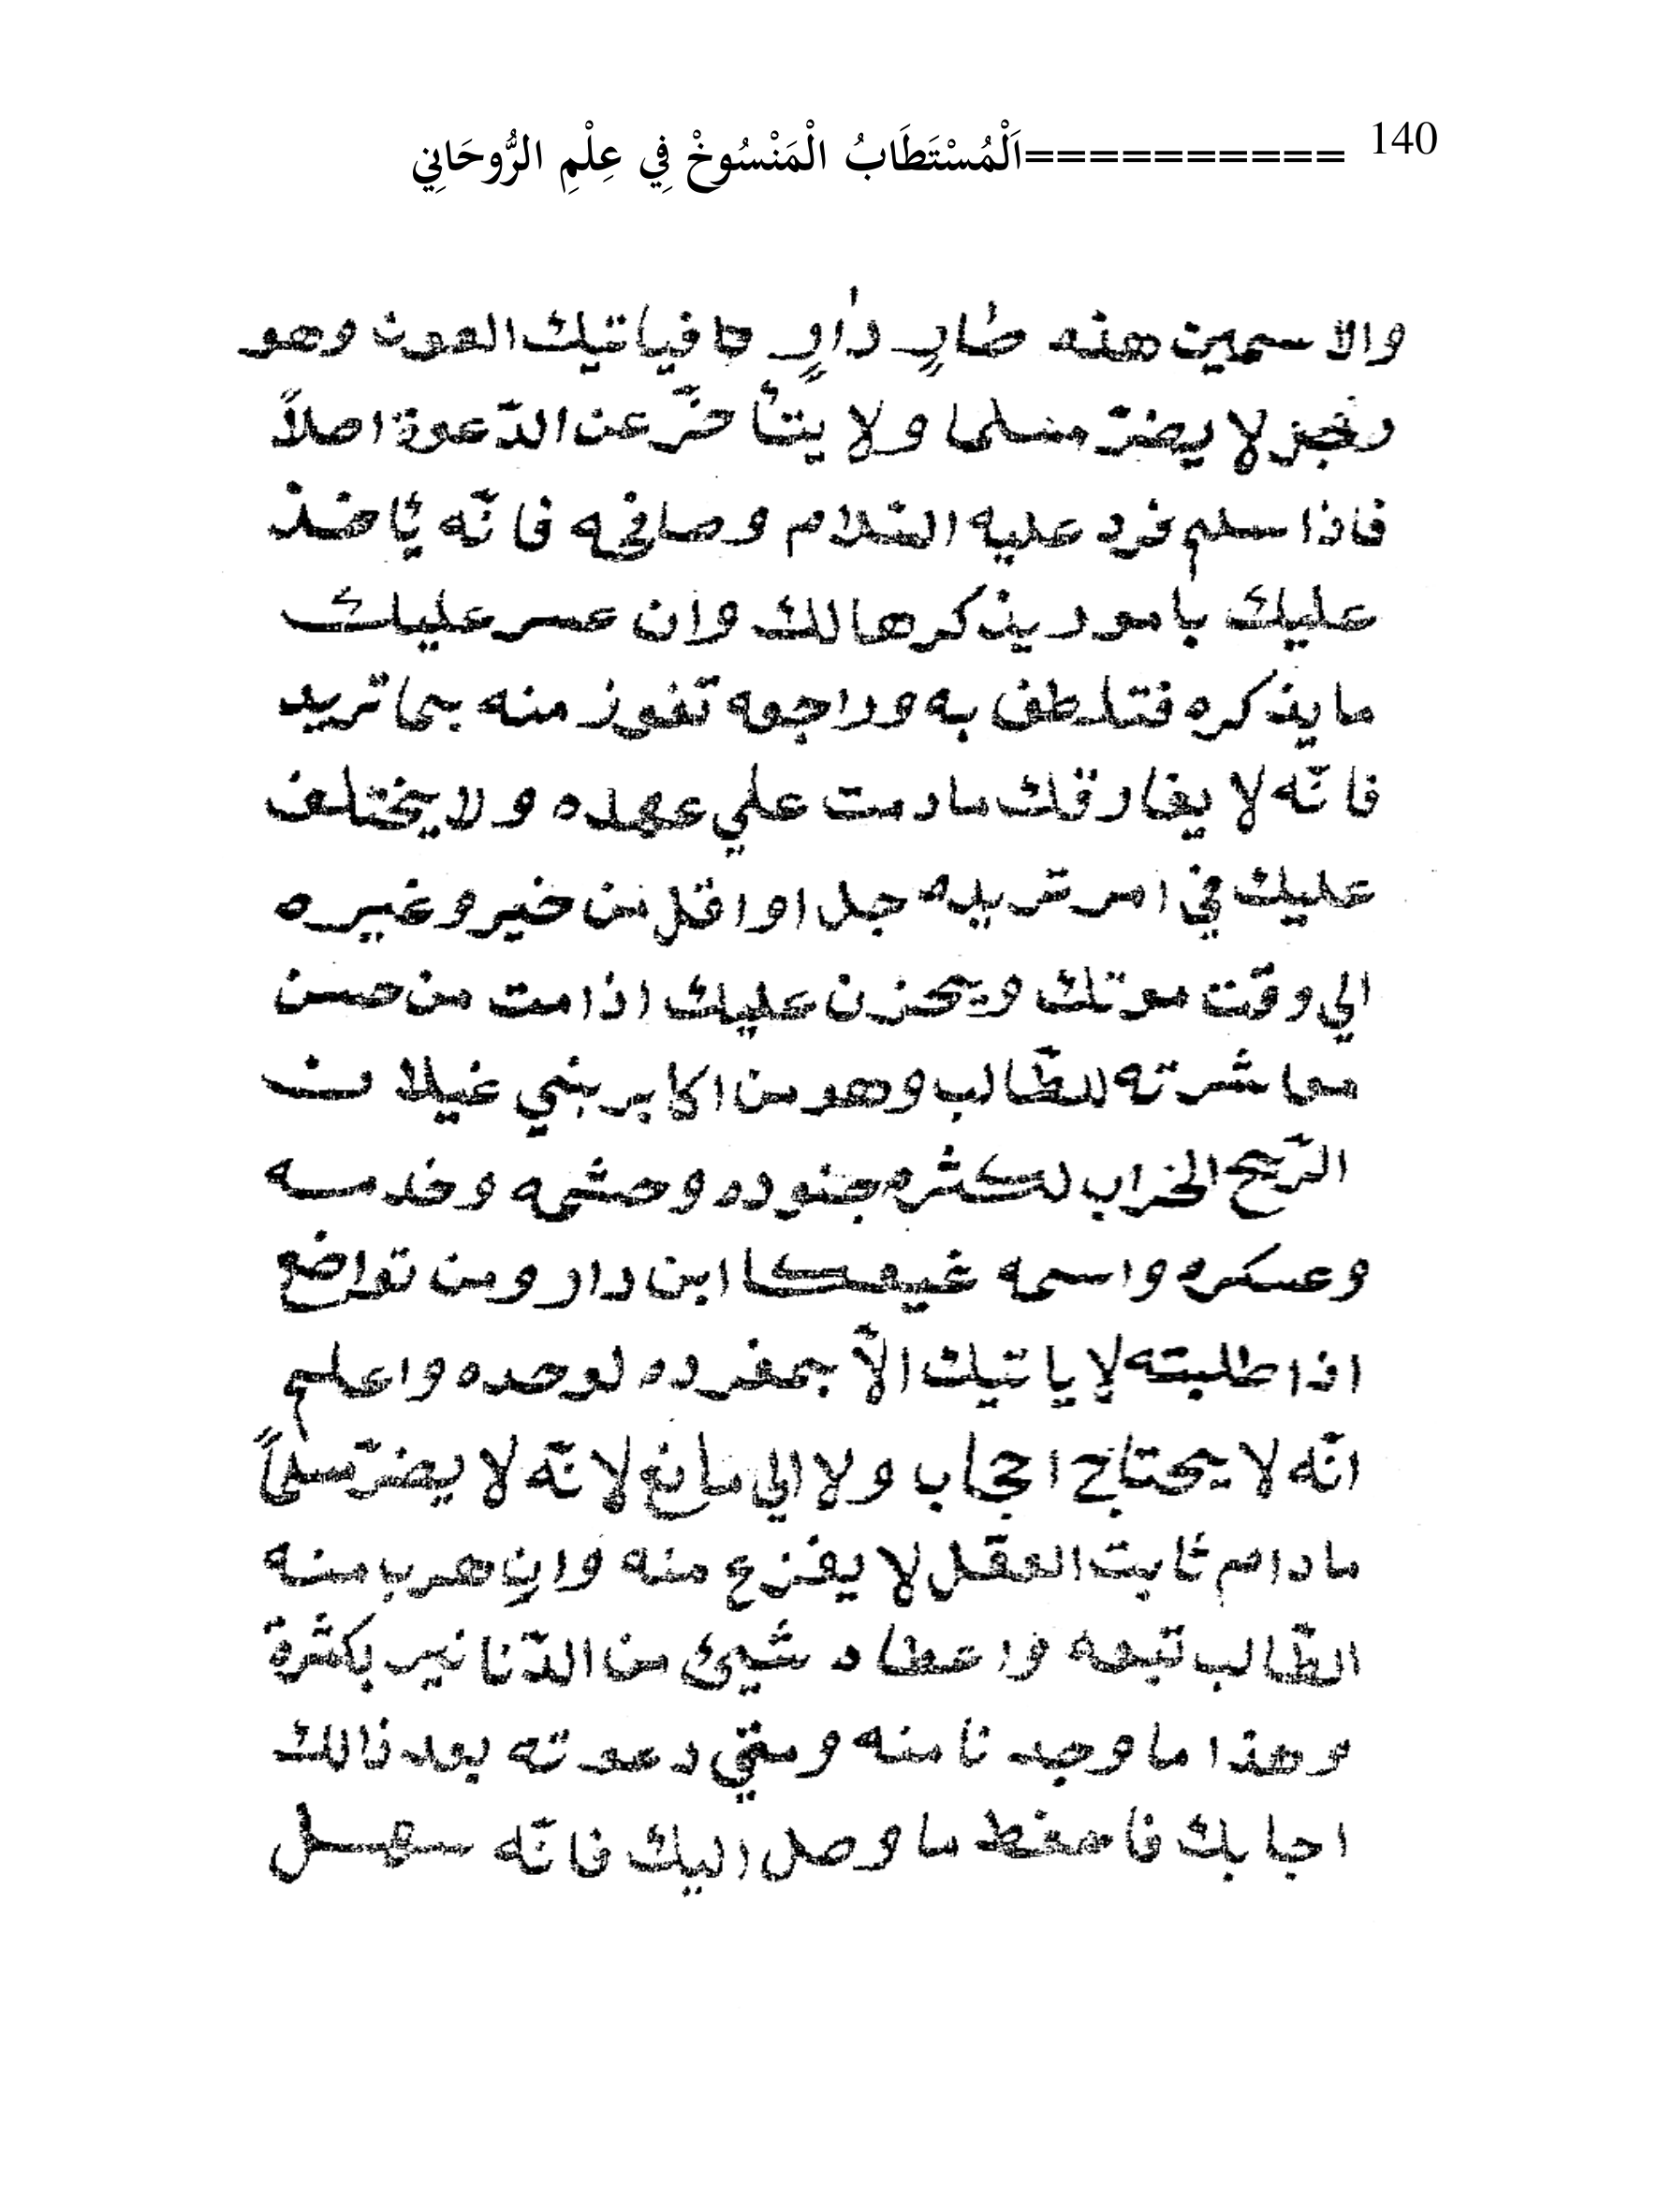 140 ==========اَلْمُسْتَطَابُ الْمَنْسُوخْ فِي عِلْمِ الرُّوحَانِي
والا سمين هذه طارٍ داوٍ حا فياتيك العون وهو
لا يضرّ مسلما ولا يتأخرّ عن الدّعوة اصلاً
فاذا سلم فرد عليه السّلام وصافحه فانّه ئاخذ
عليك بامور يذكرها لك وان عسر عليك
ما يذكره فتلطف به وراجعه تفوز منه بما تريد
فانّه لا يفارقك مادمت علي عهده ولا يختلف
عليك في امر تريده جل او اقل من خير وغيره
الي وقت موتك ويحزن عليك اذا مت من حسن
معاشرته للطّالب وهو من اكابر بني غيلان
الرّيح الخراب لكثره جنوده وحشمه وخدمه
وعسكره واسمه ابن داو ومن تواضع
اذا طلبته لا ياتيك الاّ بمفرده لوحده واعلم
انّه لا يحتاج احجاب ولا الي مانع لانّه لا يضرّ سلماً
مادام ثابت العقل لا يفزع منه وان هرب منه
الطّالب تبعه واعطاه شيئ من الدّنانير بكثرة
وهذا ما وجدنا منه ومتي دعوته بعد ذالك
اجابك فاحفظ ما وصل اليك فانّه سهل